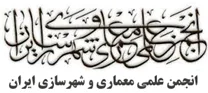 انجمن علمی معماری و شهرسازی ایران
انجمن علمی معماری و شهرسازی ایران